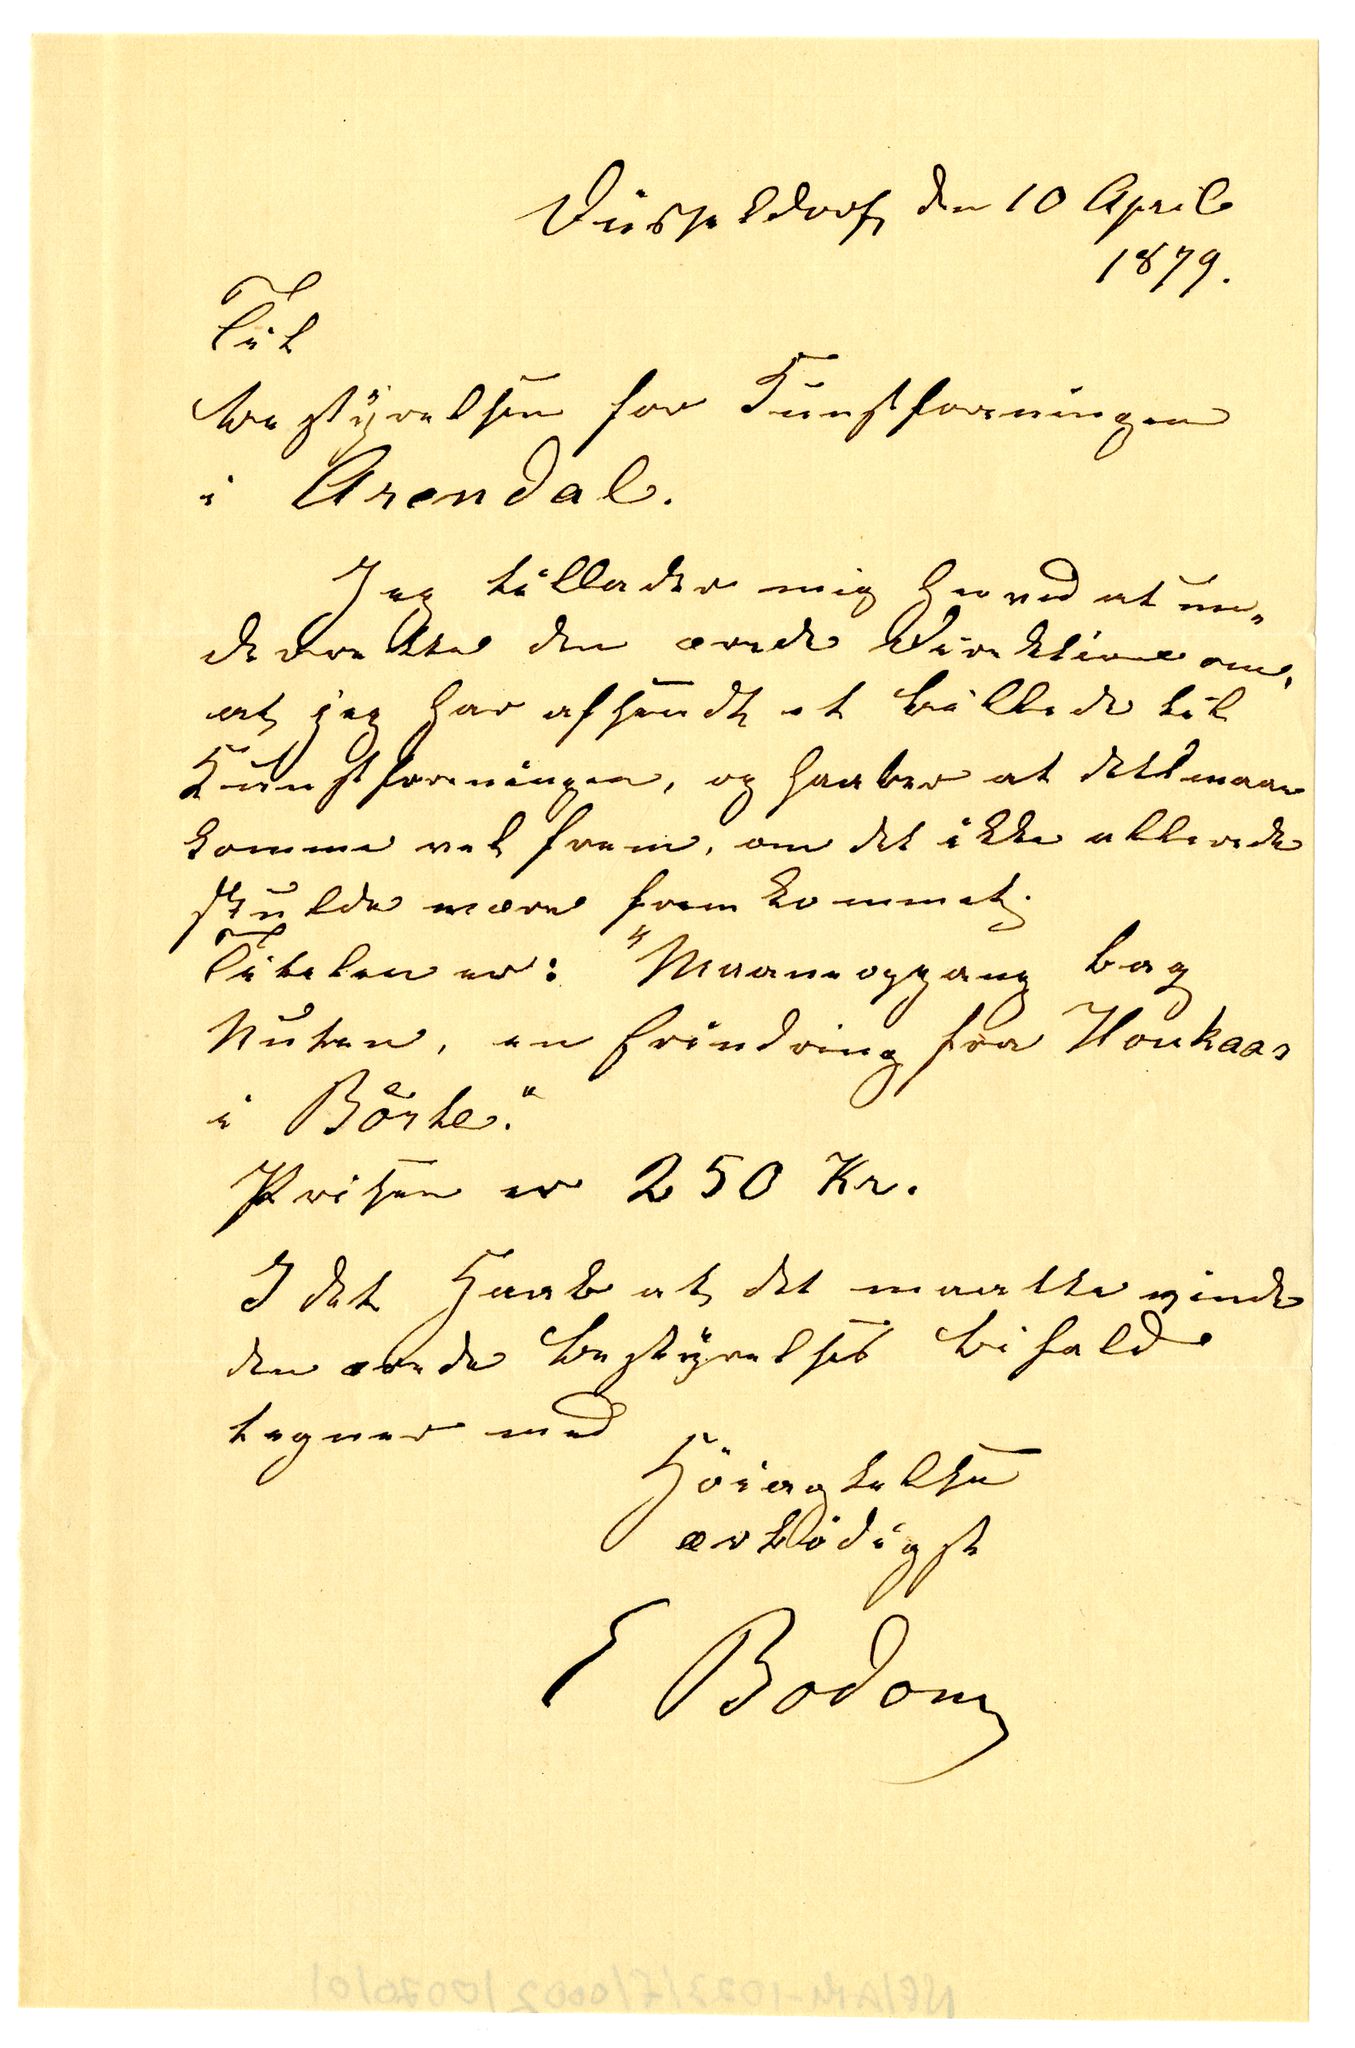 Düsseldorf, den 10 April
1879.
Til
bestÿrelsen for Kunstforeningen
i Arendal.
Jeg tillader mig herved at un-
derrette den ærede Direktion om,
at jeg har afsendt et billede til
Kunstforeningen, og haaber at det maa
komme vel frem, om det ikke allerede
skulde være fremkommet.
Titelen er: "Maaneopgang bag
Nuten, en Erindring fra
i Börte."
Prisen er 250 Kr.
I det Haab at det maatte vinde
den ærede bestÿrelses bifald
tegner med
Höiagtelse
ærbödigst
E Bodom